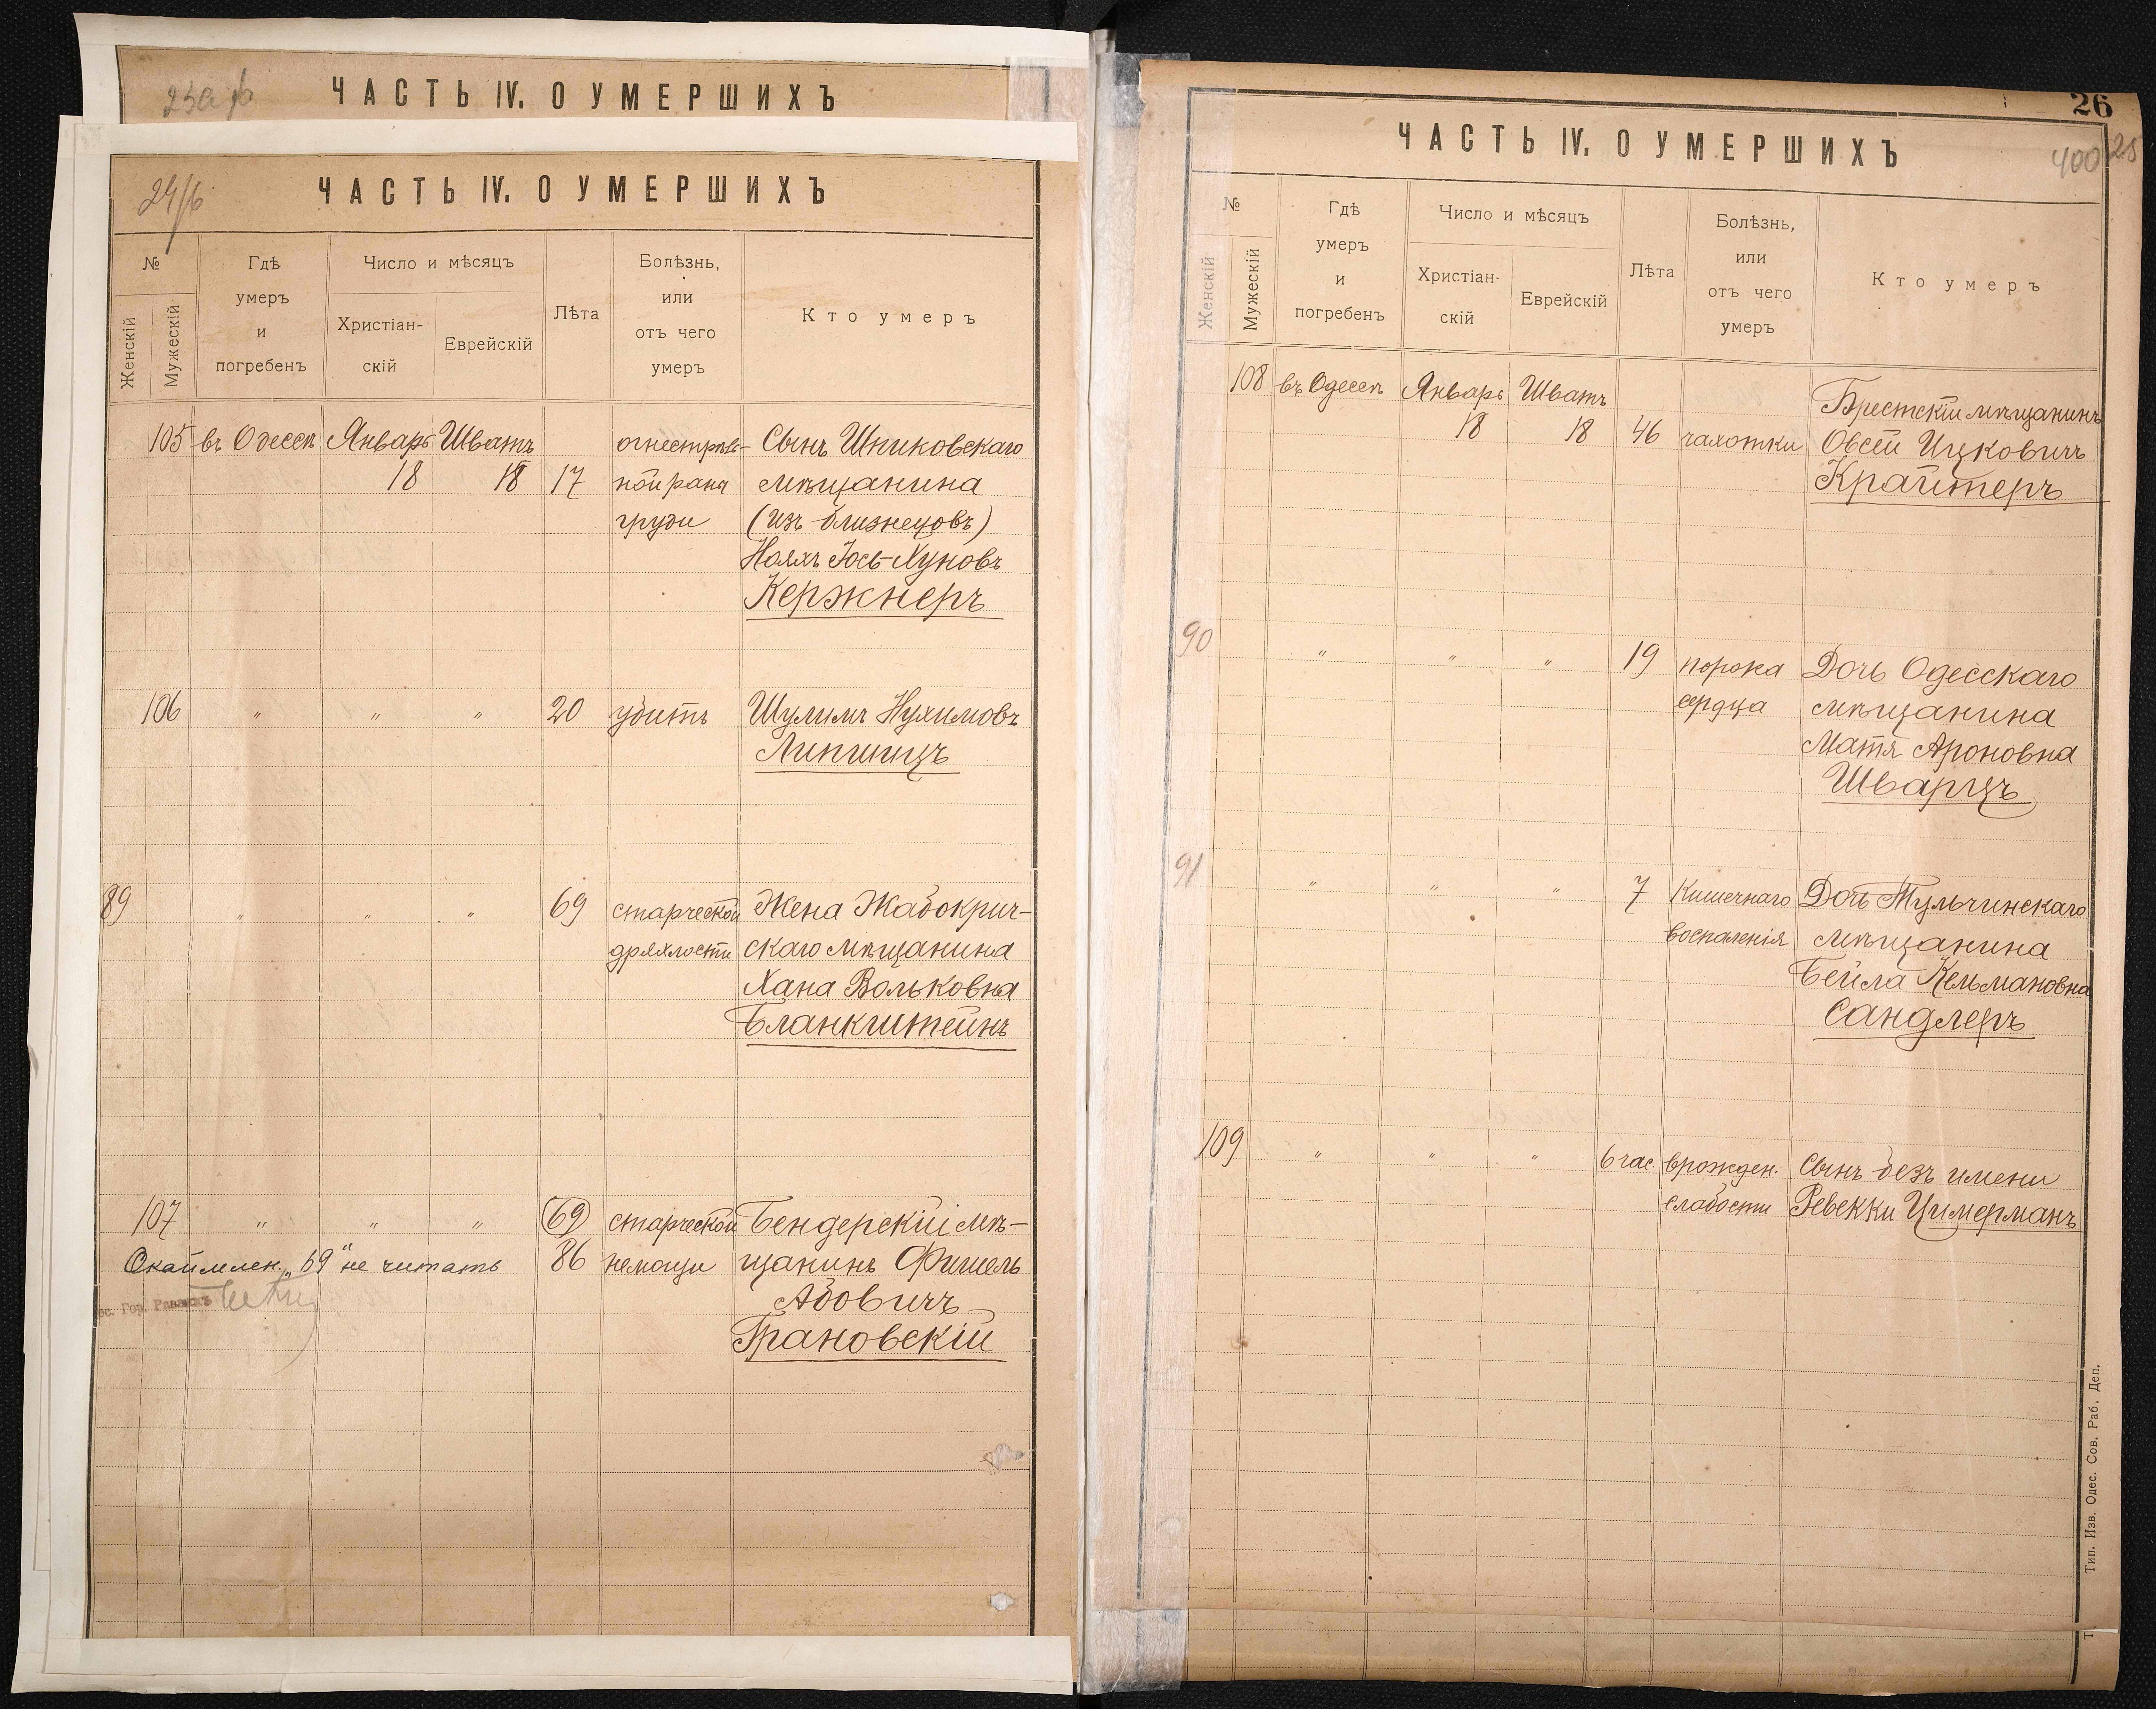 ЧАСТЬ IV. О УМЕРШИХЪ
ЧАСТЬ IV. О УМЕРШИХЪ
№
Женскій
Мужескій
Гдѣ
умеръ
и
погребенъ
Число и мѣсяцъ
Христіан-
скій
Еврейскій
Лѣта
Болѣзнь,
или
отъ чего
умеръ
Кто умеръ
105 въ Одессѣ Январь Шватъ огнестрѣль- Сынъ Шпиковскаго
18 18 17 ной раны мѣщанина
груди (изъ близнецовъ)
Іось-Хуновъ
Кержнеръ
106 " " " 20 убитъ Шулимъ Нухимовъ
Липшицъ
89 " " " 69 старческой Жена Жабокрич-
дряхлости скаго мѣщанина
Хана Вольковна
Бланкштейнъ
107 " " " 69 старческой Бендерскій мѣ-
Окаймлен. „69" не читать 86 немощи щанинъ Фишель
Абовичъ
Грановскій
26
ЧАСТЬ IV. О УМЕРШИХЪ
400 25
№
Женскій
Мужескій
Гдѣ
умеръ
и
погребенъ
Число и мѣсяцъ
Христіан-
скій
Еврейскій
Лѣта
Болѣзнь,
или
отъ чего
умеръ
Кто умеръ
108 въ Одессѣ Январь Шватъ Брестскій мѣщанинъ
18 18 46 чахотки Овсей Ицковичъ
Крайтеръ
90 " " " 19 порока Дочь Одесскаго
сердца мѣщанина
Матя Ароновна
Шварцъ
91 " " " 7 Кишечнаго Дочь Тульчинскаго
воспаленія мѣщанина
Бейла Кельмановна
Сандлеръ
109 " " " 6 час. врожден. Сынъ безъ имени
слабости Ревекки Цимерманъ
Тип. Изв. Одес. Сов. Раб. Деп.